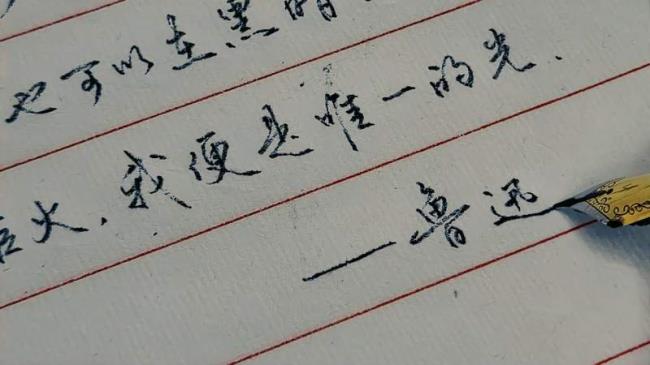 也可以在黑暗
炬火，我便是唯一的光．
——鲁迅